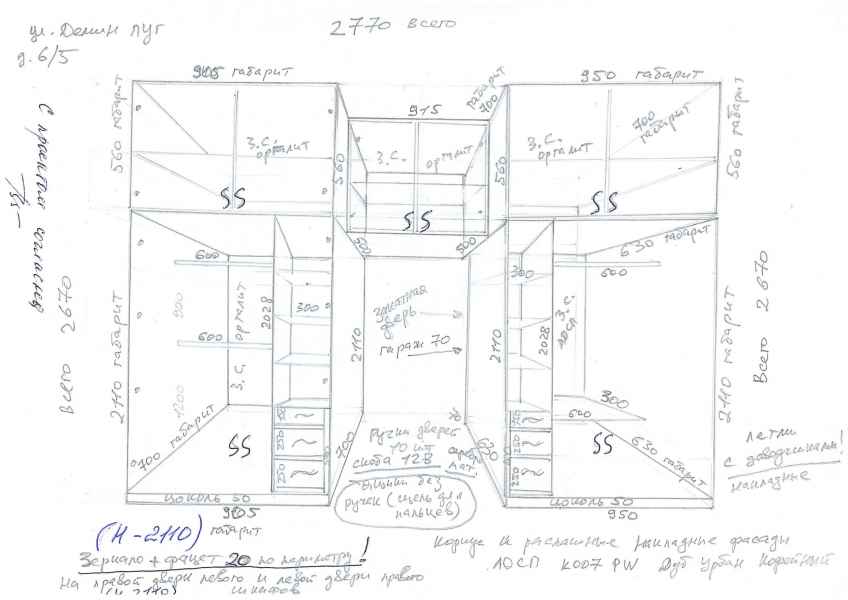 ул. Демин луг
д. 6/5
2770 всего
905 габарит
915
950 габарит
560 габарит
700 габарит
560 габарит
З.С. оргалит
З.С. оргалит
З.С. оргалит
700 габарит
560
560
SS
SS
SS
С проектом согласен
500
500
630 габарит
600
300
300
600
900
З.С. оргалит
2028
2028
З.С. ЛДСП
входная дверь
гараж 70
600
2110
2110
2110 габарит
2110 габарит
всего 2670
Всего 2670
1200
300
600
700 габарит
SS
SS
630 габарит
250
250
700
630
Ручки дверей
10 шт
скоба 128
мат.
ящики без
ручек (щель для
пальцев)
петли
с доводчиками!
накладные
цоколь 50
цоколь 50
905
габарит
950
(H-2110)
Зеркало + фацет 20 по периметру!
на правой двери левого и левой двери правого
(H 2110) шкафов
корпус и распашные накладные фасады
ЛДСП K007 PW Дуб Урбан Кофейный